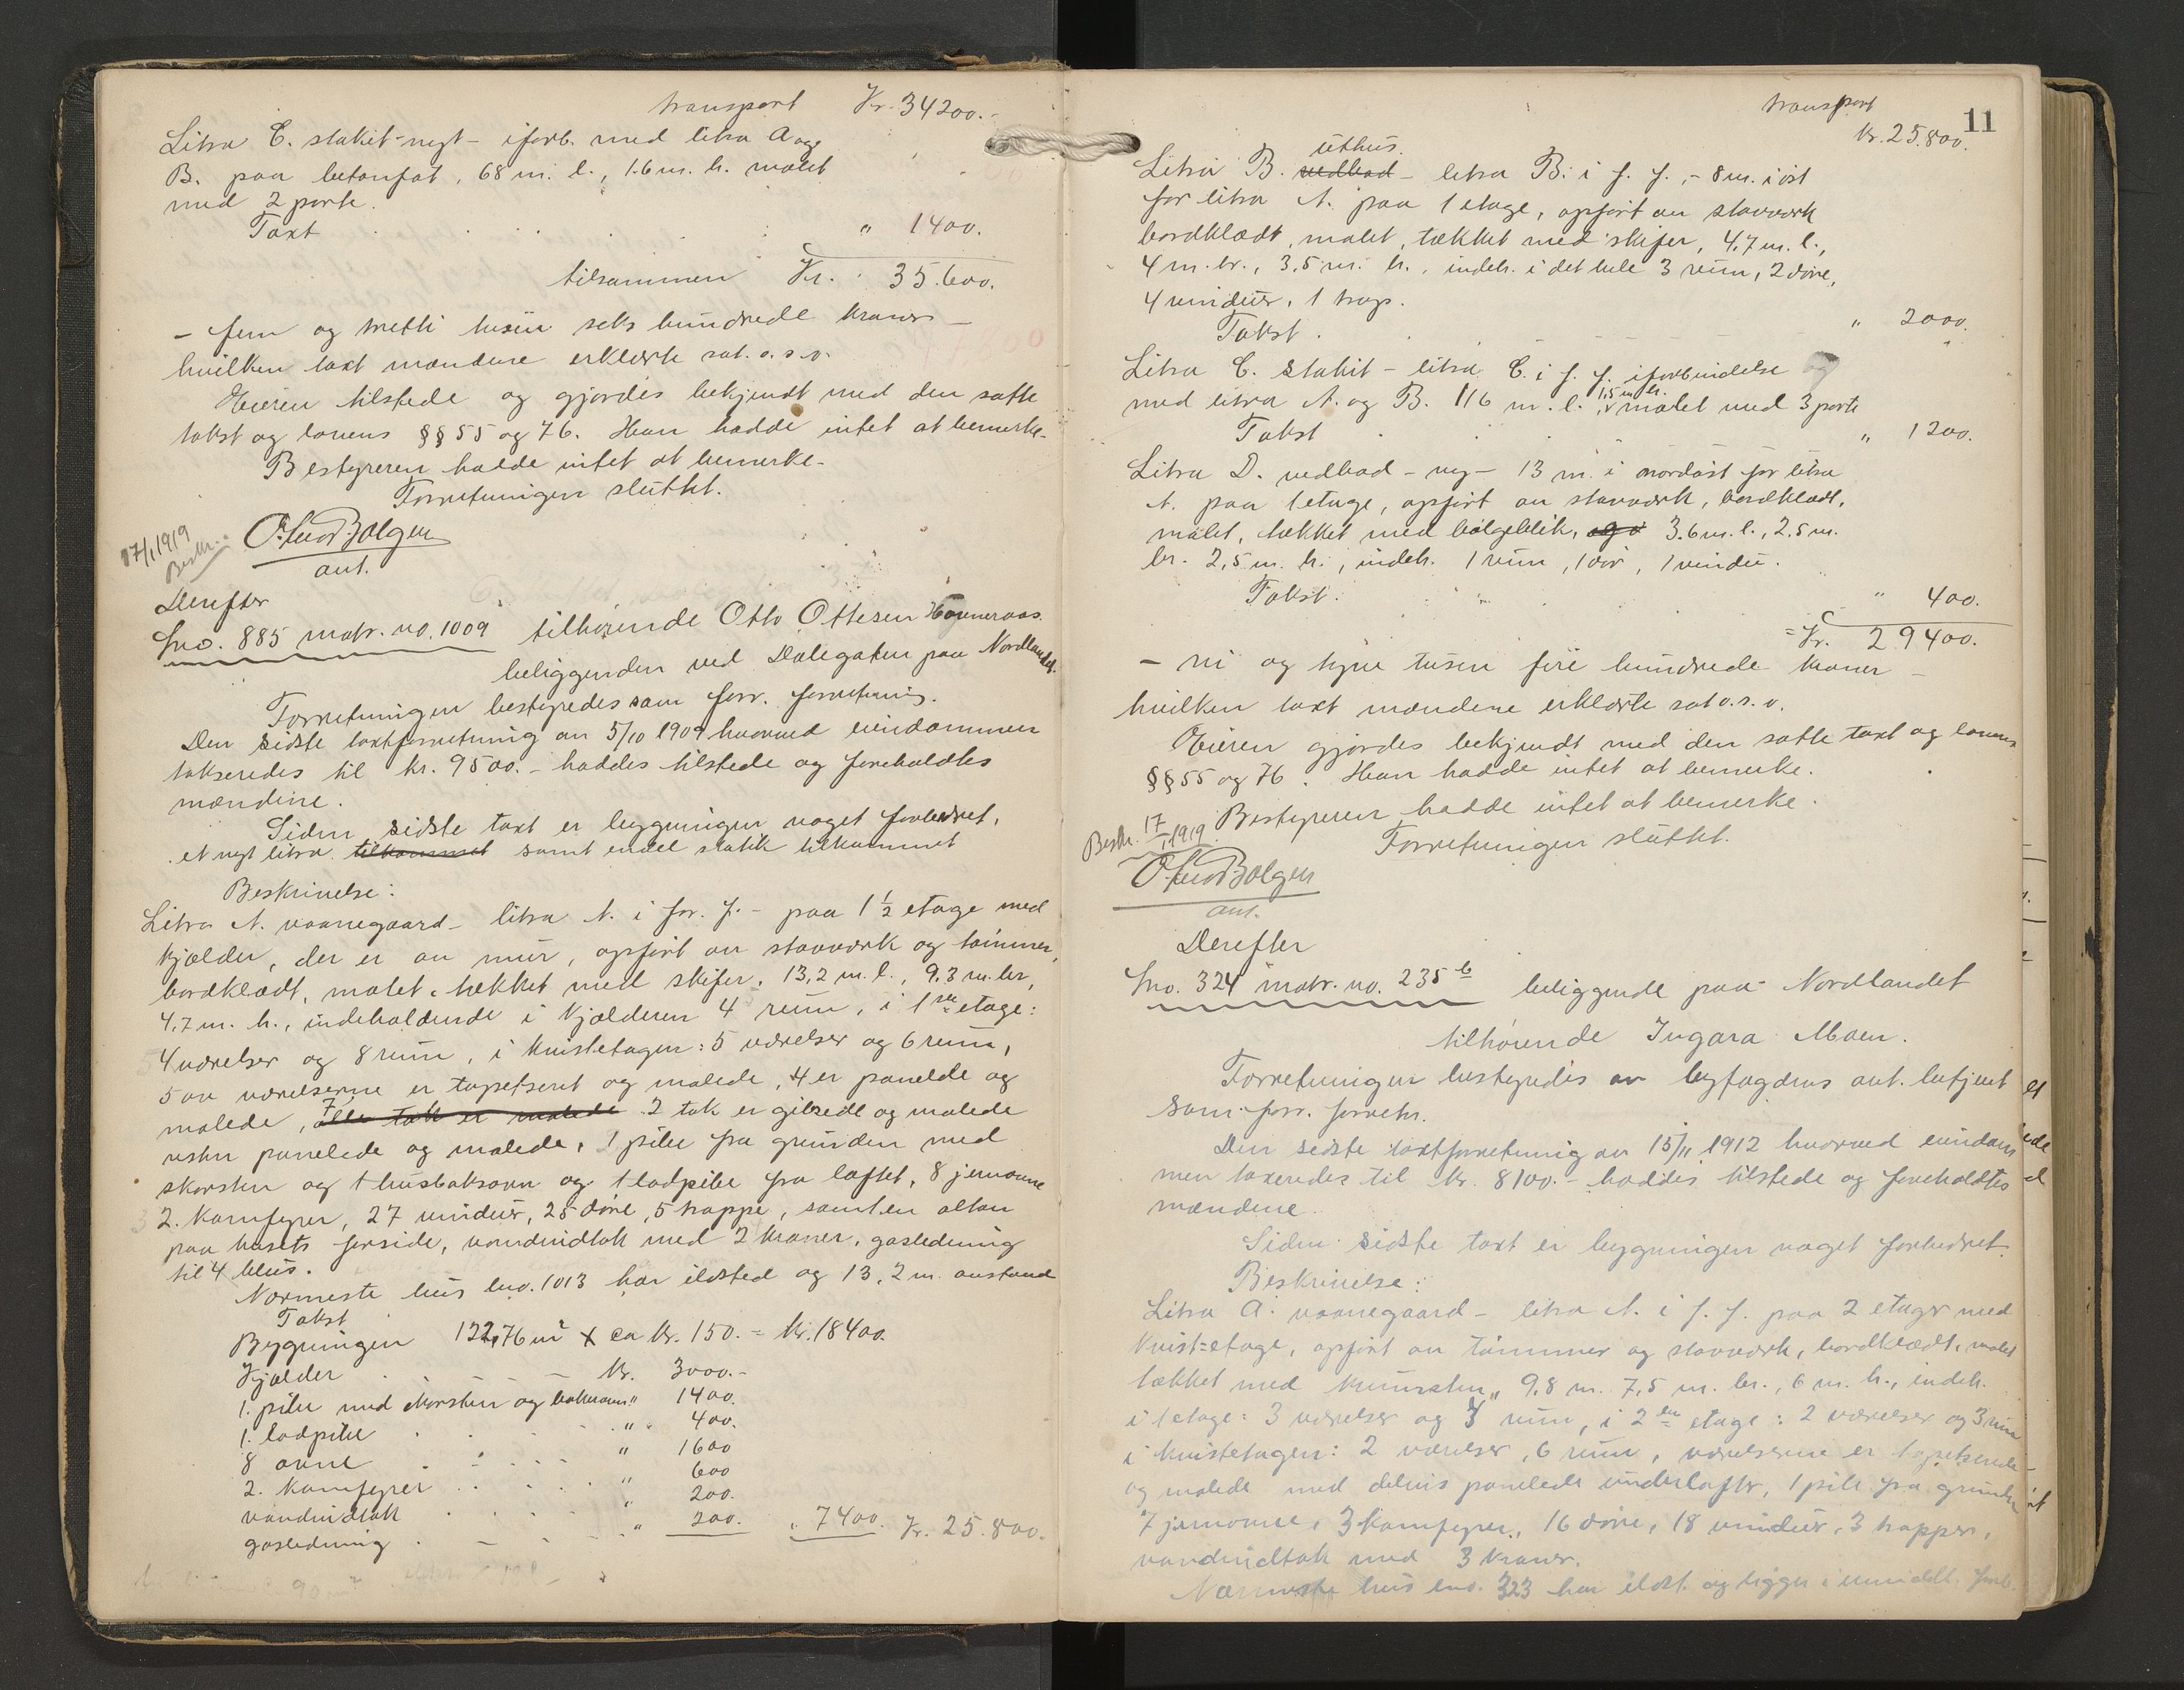 transport Kr. 34200.-
Litra C. stakit - nyt - iforb. med litra A og
B. paa betonfot, 68 m. l., 1.6 m. h. malet
med 2 porte.
Taxt " 1400.
tilsammen Kr. 35.600.
- fem og tretti tusin seks hundrede kroner -
hvilken taxt mændene erklærte sat. o. s. v.
Eieren tilstede og gjordes bekjendt med den satte
takst og lovens §§ 55 og 76. Han hadde intet at bemerke.
Bestyreren hadde intet at bemerke.
Forretningen sluttet.
17/1 1919
Beskr.
ant.
Derefter
Lno. 885 matr. no. 1009 tilhørende Otto Ottesen
beliggenden ved Dalegaten paa Nordlandet.
Forretningen bestyredes som forr. forretning.
Den sidste taxtforretning av 5/10 1909 hvorved eiendommen
takseredes til kr. 9500.- haddes tilstede og foreholdtes
mændene.
Siden sidste taxt er bygningen noget forbedret,
et nyt litra tilkommet samt endel stakit tilkommet
Beskrivelse:
Litra A. vaanegaard - litra A. i for. f. - paa 1 1/2 etage med
kjælder, der er av mur, opført av stavverk og tømmer,
bordklædt, malet, tækket med skifer, 13,2 m. l., 9,3 m. br.,
4,7 m. h., indeholdende i kjælderen 4 rum, i 1ste etage:
4 værelser og 8 rum, i kvistetagen: 5 værelser og 6 rum,
5 av værelserne er tapetseret og malede, 4 er panelde og
malede, 7 alle tak er malede 2 tak er gibsede og malede
resten panelede og malede, 1 pibe fra grunden med
skorsten og 1 husbakerovn og 1 lodpibe fra loftet, 8 jernovne
2. komfyrer, 27 vinduer, 25 døre, 5 trapper, samt en altan
paa husets forside, vandindtak med 2 kraner, gasledning
til 4 blus.
Nærmeste hus lno. 1013 har ildsted og 13,2 m. avstand
Takst
Bygningen 122,76 m² x ca kr. 150.- = kr. 18400.
Kjælder Kr. 3000.-
1. pibe med skorsten og bakerovn " 1400.
1. lodpibe " 400.
8 ovne " 1600
2. komfyrer " 600
vandindtak " 200.
gasledning " 200. " 7400. Kr. 25.800.
transport 11
kr. 25.800.
uthus.
Litra B. vedbod - litra B. i f. f., - 8 m. i øst
for litra A. paa 1 etage, opført av stavverk
bordklædt, malet, tækket med skifer, 4,7 m. l.,
4 m. br., 3,5 m. h., indeh. i det hele 3 rum, 2 døre,
4 vinduer, 1 trap.
Takst. " 2000.
Litra C. Stakit - litra C. i f. f. iforbindelse
1,5 m h.
med litra A. og B. 116 m. l. malet med 3 porte
Takst " 1200.
Litra D. vedbod - ny - 13 m. i nordøst for litra
A. paa 1 etage, opført av stavverk, bordklædt,
malet, tækket med bølgeblik, og 3.6 m. l., 2.5 m.
br. 2,5 m. h., indeh. 1 rum, 1 dør, 1 vindu.
Takst. " 400.
= Kr. 29400.
- ni og tyve tusen fire hundrede kroner -
hvilken taxt mændene erklærte sat o. s. v.
Eieren gjordes bekjendt med den satte taxt og lovens
§§ 55 og 76. Han hadde intet at bemerke.
Bestyreren hadde intet at bemerke.
Beskr. 17/1 1919.
Forretningen sluttet.
ant.
Derefter
Lno. 324 matr. no. 235 b beliggende paa Nordlandet
tilhørende Ingara Moen.
Forretningen bestyredes av byfogdens aut. befjent
som forr. forretn.
Den sidste taxtforretning av 15/11 1912 hvorved eiendom
men taxeredes til kr. 8100.- haddes tilstede og foreholdtes
mændene.
Siden sidste taxt er bygningen noget forbedret.
Beskrivelse:
Litra A. vaanegaard - litra A. i f. f. paa 2 etager med
kvist=etage, opført av tømmer og stavverk, bordklædt, malet
tækket med 9,8 m. 7,5 m. br., 6 m. h., indeh.
i 1 etage: 3 værelser og rum, i 2den etage: 2 værelser og 3 rum
i kvistetagen: 2 værelser, 6 rum, værelserne er tapetserede
og malede med delvis panelede underlofter, 1 pibe fra grunden
7 jernovne, 3 komfyrer, 16 døre, 18 vinduer, 3 trapper,
vandindtak med 3 kraner.
Nærmeste hus lno. 323 har ildst. og ligger i umiddelb. forb.